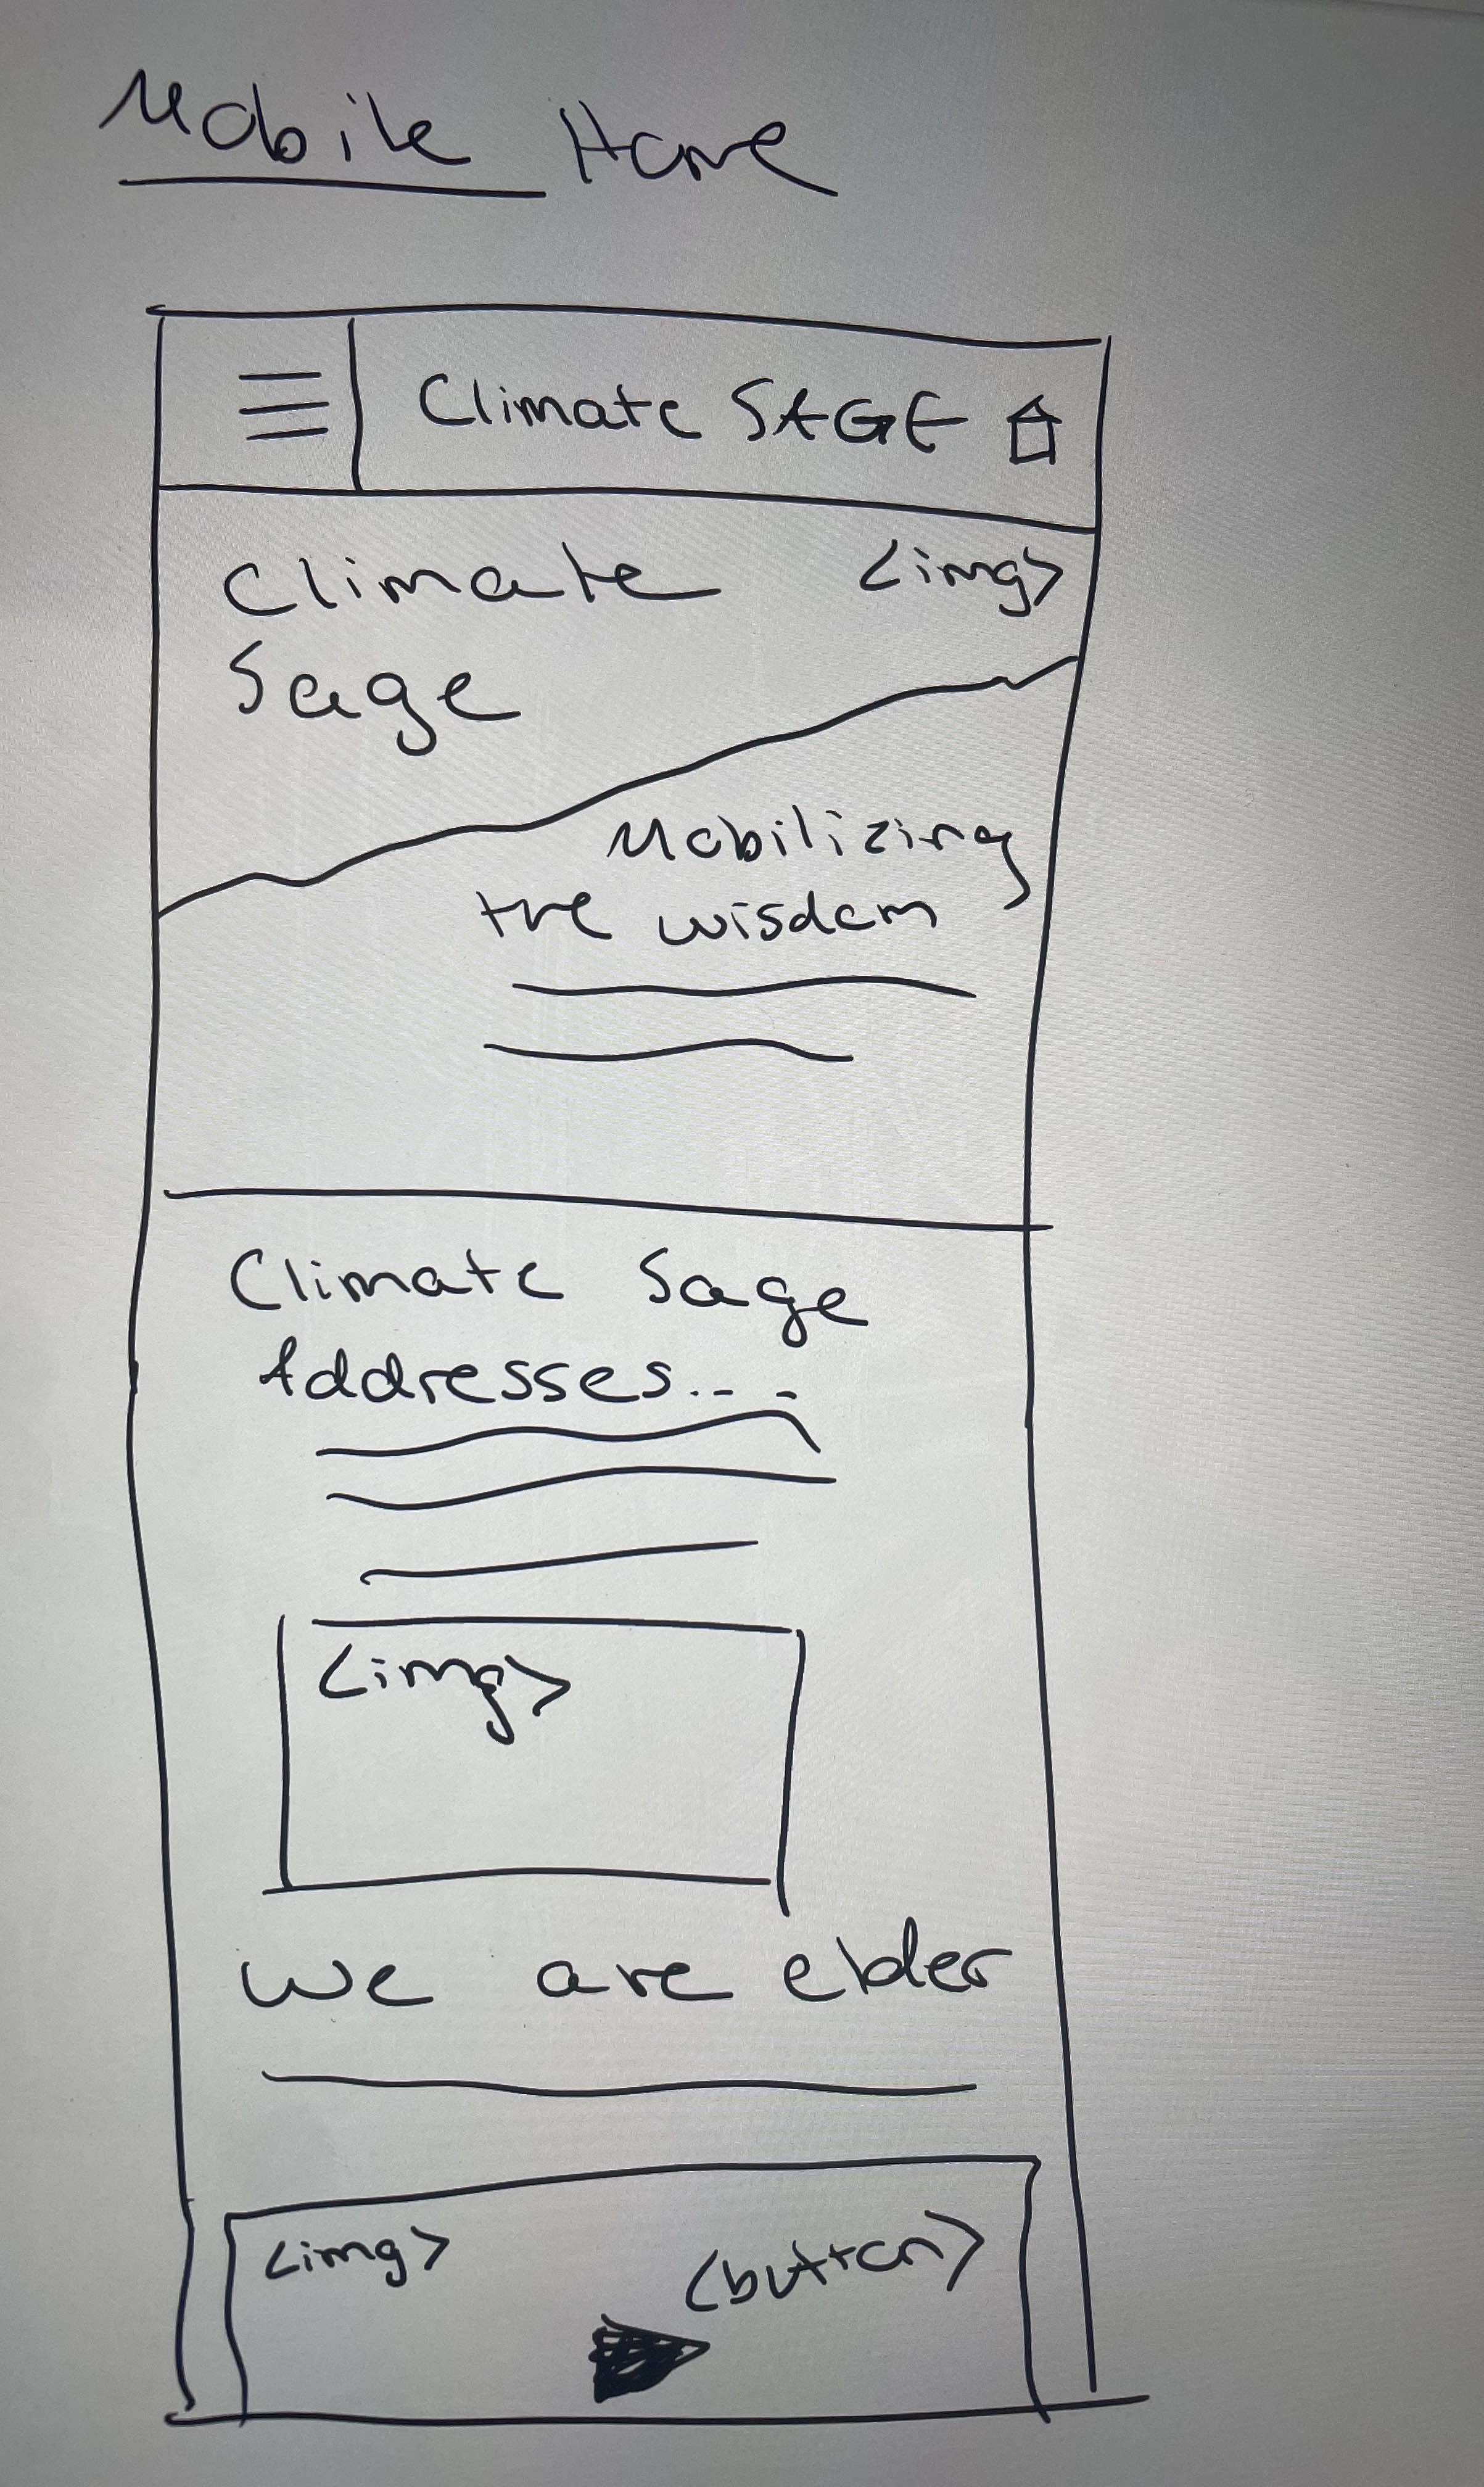 Mobile Home
Climate SAGE
Climate <img>
Sage
Mobilizing
the wisdom
Climate Sage
Addresses...
<img>
we are elder
<img> <button>